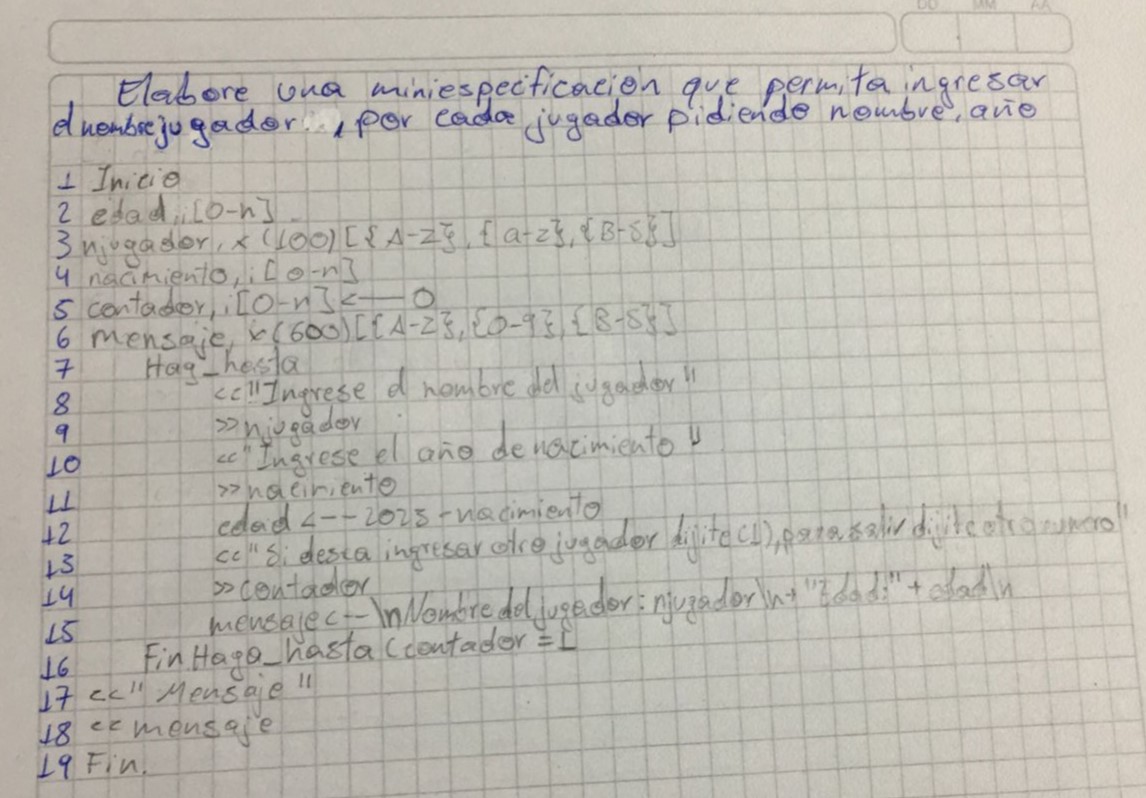 DD MM AA
Elabore una miniespecificación que permita ingresar
el nombre jugador, por cada jugador pidiendo nombre, año
1 Inicio
2 edad, i [0-n]
3 njugador, x (100) [{A-Z}, {a-z}, {B-S}]
4 nacimiento, i [0-n]
5 contador, i [0-n] <-- 0
6 mensaje, x (600) [{A-Z}, {0-9}, {B-S}]
7 Hag_hasta
8 <<"Ingrese el nombre del jugador"
9 >>njugador
10 <<"Ingrese el año de nacimiento"
11 >>nacimiento
12 edad <-- 2025 - nacimiento
13 <<"Si desea ingresar otro jugador dijite (1), para salir dijite otro numero"
14 >>contador
15 mensaje <-- \nNombre del jugador: njugador\n + "Edad:" + edad\n
16 Fin Haga_hasta (contador = 1
17 <<"Mensaje"
18 <<mensaje
19 Fin.